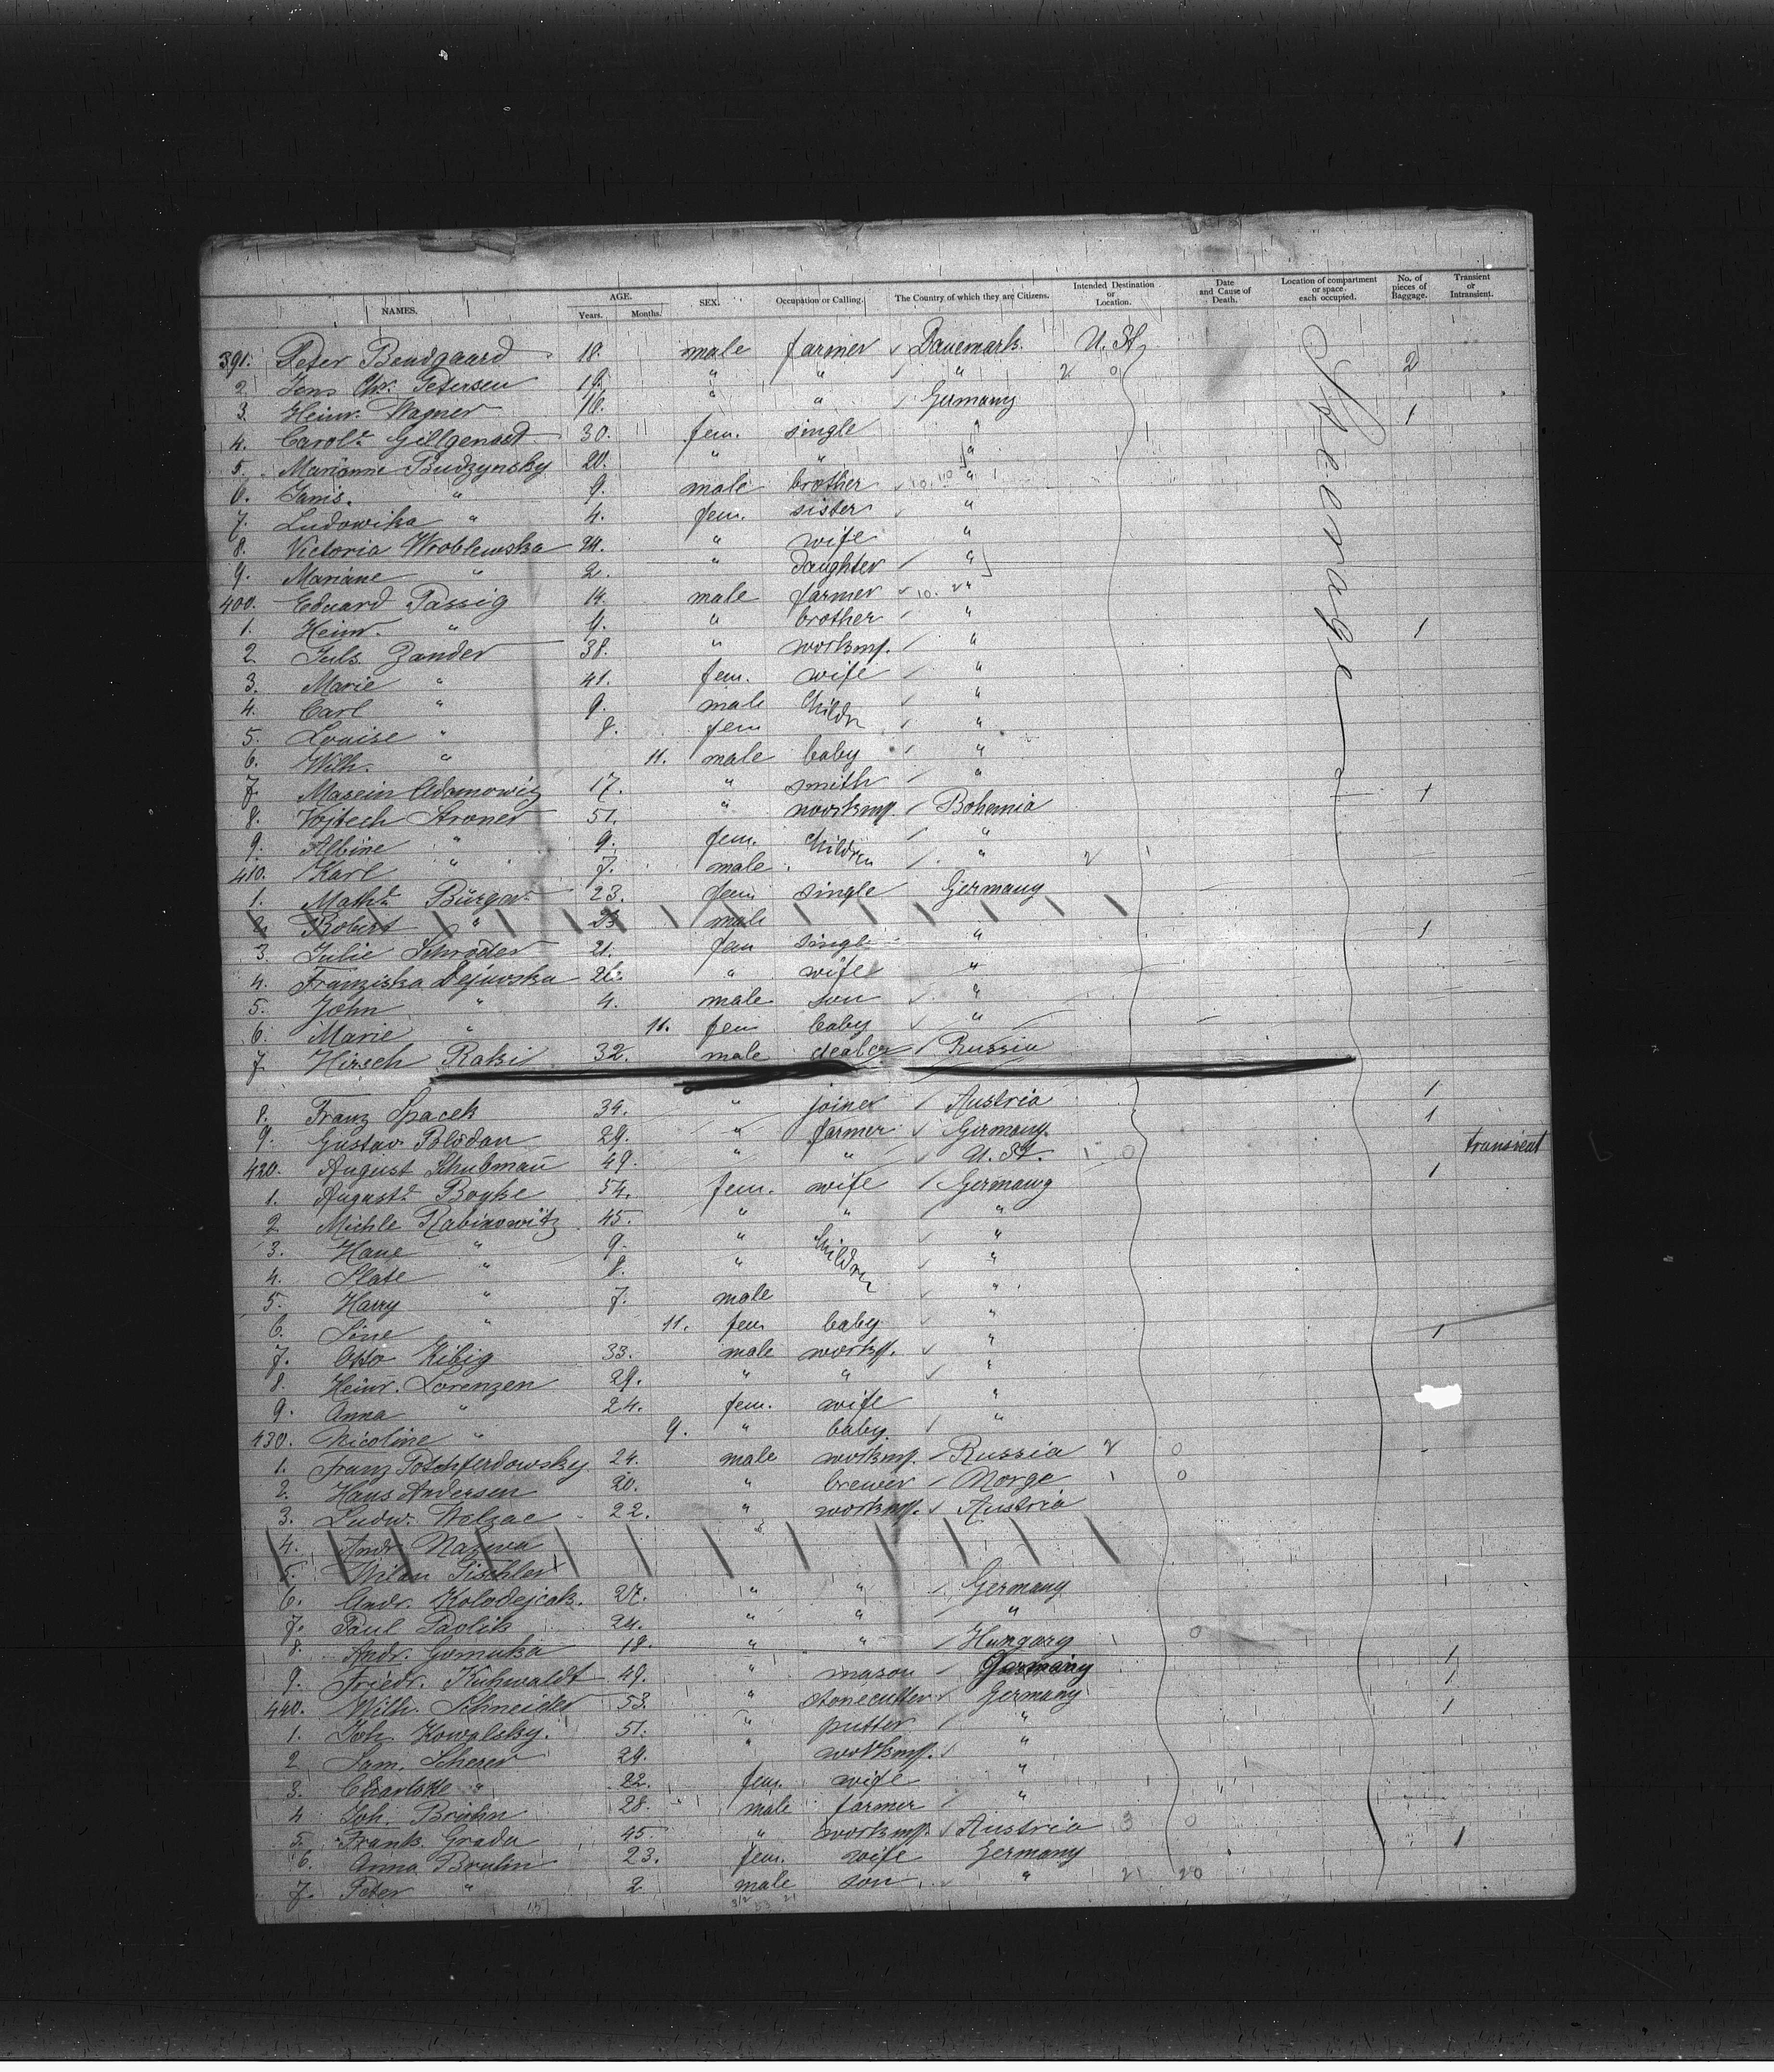 NAMES. AGE. Years. Months. SEX. Occupation or Calling. The Country of which they are Citizens. Intended Destination or Location. Date and Cause of Death. Location of compartment or space each occupied. No. of pieces of Baggage. Transient or Intransient.
Steerage
391. Peter Bendgaard 18. male farmer Danemark. U. St. 2
2 Jens Chr. Petersen 19. " " " 2 0
3. Heinr. Wagner 16. " " Germany 1
4. Carol. Gillgenast 30. fem. single "
5. Marianne Budzynsky 20. " " "
6. Janis. " 9. male brother "
7. Ludowika " 4. fem. sister "
8. Victoria Wroblewska 24. " wife "
9. Mariane " 2. " daughter "
400. Eduard Passig 14. male farmer 10. 2 "
1. Heinr. " 9. " brother " 1
2 Juls. Zander 38. " workm. "
3. Marie " 41. fem. wife "
4. Carl " 9. male Childr "
5. Louise " 8. fem "
6. Wilh. " 11. male baby "
7. Adamowitz 17. " smith " 1
8. Vojtech 51. " workm. Bohemia
9. Albine " 9. fem. Children "
410. Karl " 7. male " 2
1. Math. Bürger 23. fem single Germany
2. Robert " 23 male
3. Julie Schröder 21. fem single " 1
4. Franziska 26. " wife "
5. John " 4. male son "
6. Marie " 11. fem baby "
7. Hirsch Raki 32. male dealer Russia
8. Franz Spacek 34. " joiner Austria 1
9. Gustav 29. " farmer Germany. 1
420. August 49. " " U. St. 1 0 transient
1. August. Boyke 54. fem. wife Germany 1
2 Michle Rabinowitz 45. " " "
3. Hane " 9. " Children "
4. Slate " 8. " "
5. Harry " 7. male "
6. Line " 11. fem baby "
7. Otto Kibig 33. male workm. " 1
8. Heinr. Lorenzen 29. " " "
9. Anna " 24. fem. wife "
430. Nicoline " 9. " baby. "
1. Franz 24. male workm. Russia 2 0
2. Hans Andersen 20. " brewer Norge 1 0
3. Ludw. Welzac 22. " workm. Austria
4. Andr. Nazwa
5. Milan Tischler
6. Andr. Kolodejcak. 27. " " Germany
7. Paul Pavlik 24. " " "
8. Andr. Gumuka 18. " " Hungary 1 0
9. Friedr. Kuhwaldt 49. " mason Germany 1
440. Wilh. Schneider 53. " stonecutter Germany 1
1. Joh. Kowalsky. 51. " putter " 1
2 Sam. Scherer 29. " workm. "
3. Charlotte " 22. fem. wife "
4 Joh. Bruhn 28. male farmer "
5. Frank Grada 45. " workm. Austria 3 0
6. Anna Bruhn 23. fem. wife Germany 1
7. Peter " 2 male son " 21 20